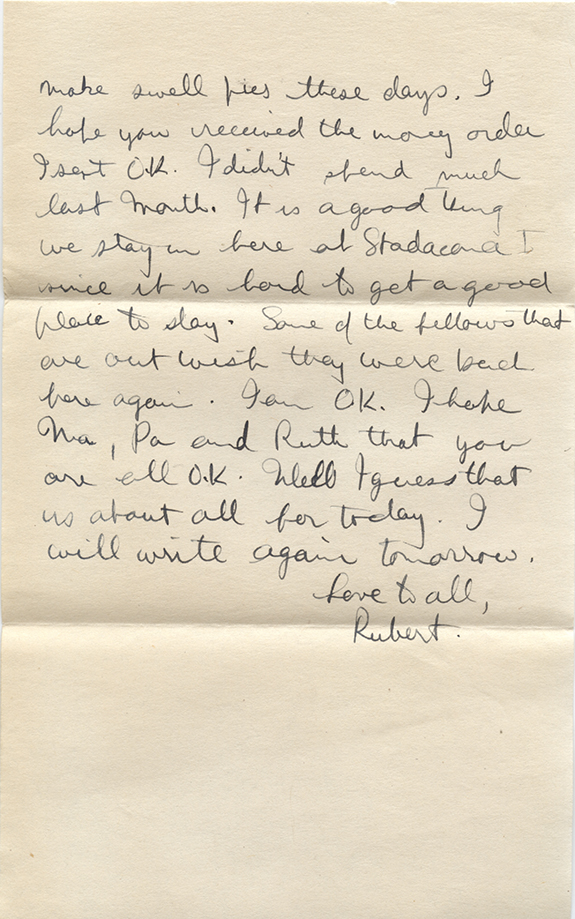 make swell pies these days. I
hope you received the money order
I sent O.K. I didn't spend much
last Month. It is a good thing
we stay in here at Stadacona I
since it is hard to get a good
place to stay. Some of the fellows that
are out wish they were back
here again. I am OK. I hope
Ma, Pa and Ruth that you
are all O.K. Well I guess that
is about all for today. I
will write again tomorrow.
Love to all,
Rubert.